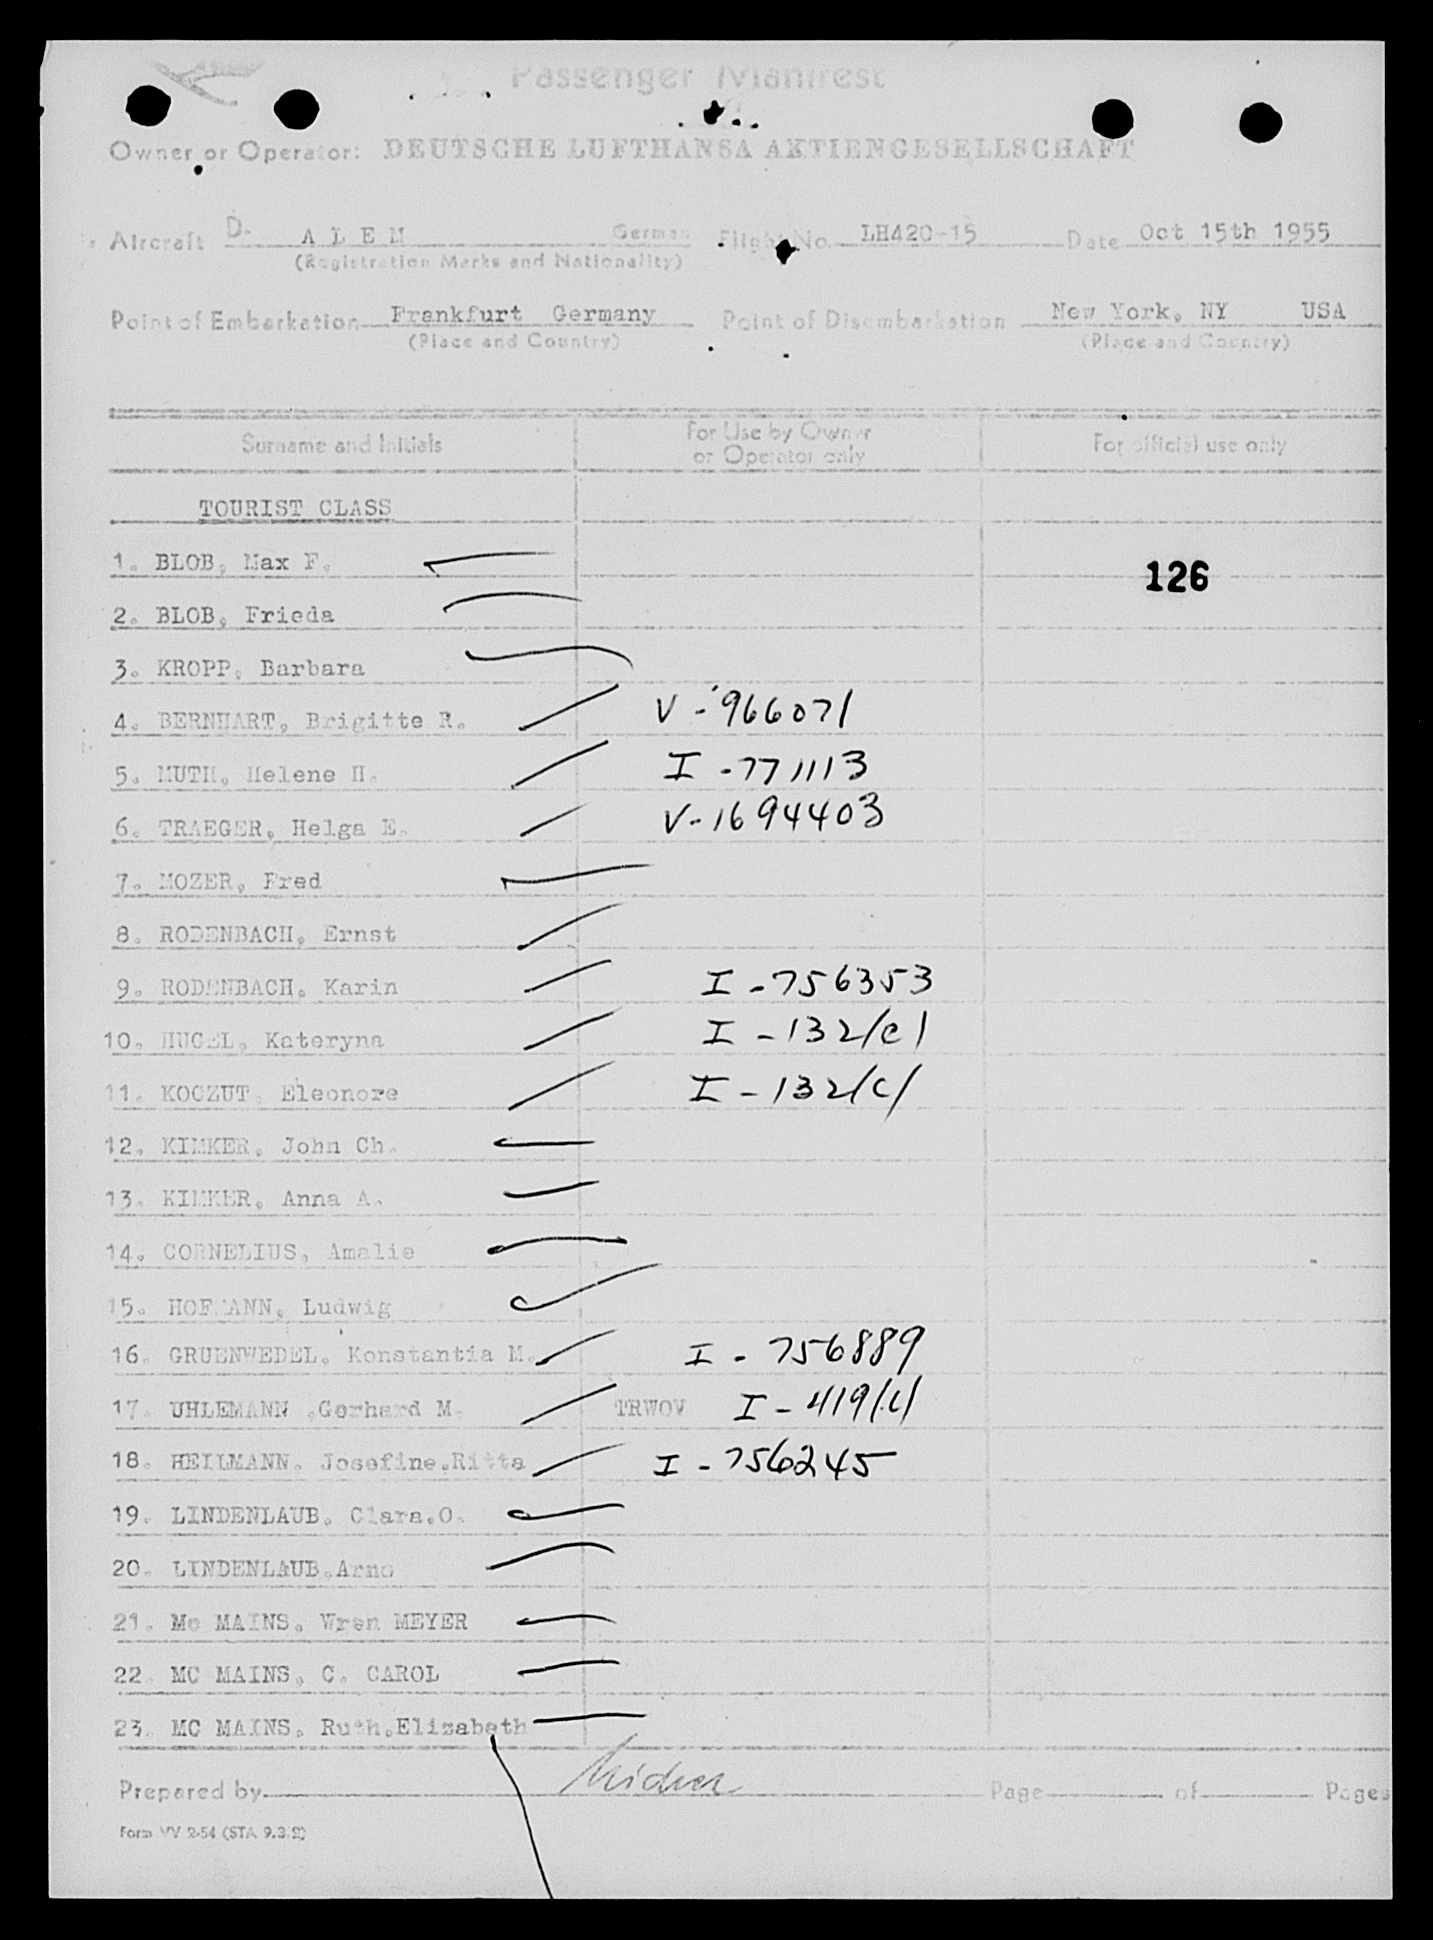 Passenger Manifest
Owner or Operator: DEUTSCHE LUFTHANSA AKTIENGESELLSCHAFT
Aircraft D- A L E M German Flight No. LH420-15 Date Oct 15th 1955
(Registration Marks and Nationality)
Point of Embarkation Frankfurt Germany Point of Disembarkation New York, NY USA
(Place and Country) (Place and Country)
Surname and Initials For Use by Owner or Operator only For official use only
TOURIST CLASS
1. BLOB, Max F. 126
2. BLOB, Frieda
3. KROPP, Barbara
4. BERNHART, Brigitte R. V-966071
5. MUTH, Helene H. I-771113
6. TRAEGER, Helga E. V-1694403
7. MOZER, Fred
8. RODENBACH, Ernst
9. RODENBACH, Karin I-756353
10. HUGEL, Kateryna I-132/c/
11. KOCZUT, Eleonore I-132/c/
12. KIMKER, John Ch.
13. KIMKER, Anna A.
14. CORNELIUS, Amalie
15. HOFMANN, Ludwig
16. GRUENWEDEL, Konstantia M. I-756889
17. UHLEMANN ,Gerhard M. TRWOV I-419/c/
18. HEILMANN, Josefine,Ritta I-756245
19. LINDENLAUB, Clara,O.
20. LINDENLAUB,Arno
21. Mc MAINS, Wren MEYER
22. MC MAINS, C. CAROL
23. MC MAINS, Ruth,Elizabeth
Prepared by Page of Pages
Form VV 2-54 (STA 9.3.2)